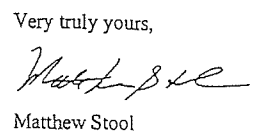 Very truly yours,
Matthew Stool
Matthew Stool